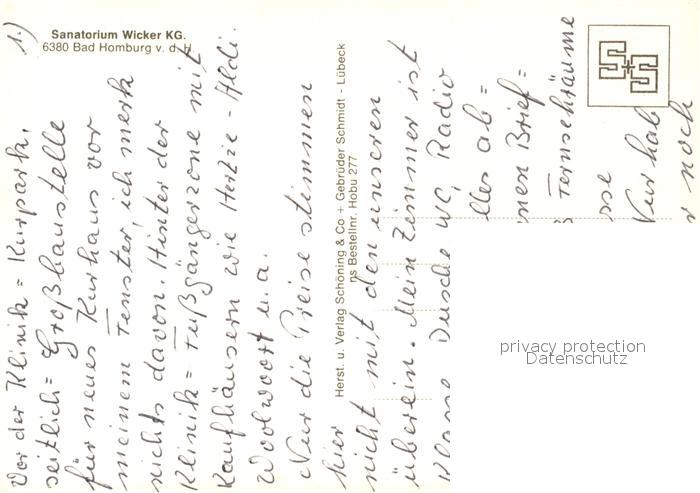 1.)
Sanatorium Wicker KG.
6380 Bad Homburg v. d. H.
Vor der Klinik = Kurpark,
seitlich = Großbaustelle
für neues Kurhaus vor
meinem Fenster, ich merk
nichts davon. Hinter der
Klinik = Fußgängerzone mit
Kaufhäusern wie Hertie - Aldi.
Woolwoort u. a.
Nur die Preise stimmen
hier
nicht mit den unseren
überein. Mein Zimmer ist
Klasse Dusche WC, Radio
lles ab =
nen Brief =
Fernsehräume
sse
Nur hab
r noch
Herst. u. Verlag Schöning & Co + Gebrüder Schmidt - Lübeck
ns Bestellnr. Hobu 277
privacy protection
Datenschutz